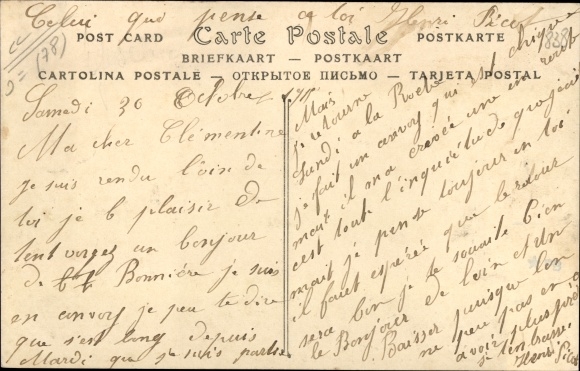 Celui qui pense a toi Henri Picot
(78)
POST CARD Carte Postale POSTKARTE
BRIEFKAART — POSTKAART
CARTOLINA POSTALE — ОТКРЫТОЕ ПИСЬМО — TARJETA POSTAL
Samedi 30 Octobre
Ma cher Clémentine
je suis rendu loin de
toi je le plaisir de
tent voyez un bonjour
de Bonnière je suis
en convoy je peu te dire
que s'est long depuis
Mardi que je suis partie
Mais
je retourne
Lundi a la Roche
je fait un convoy qui est chique
mait il ma creveé une roue
c'est tout l'inquiétude que j'ai
mait je pense toujour en toi
il faut esperée que le retour
sera bon je te souhaite bien
le Bonjour de loin et un
Baisser puisque l'on
ne peu pas en
avoir plus
je t'embrasse
Henri Picot